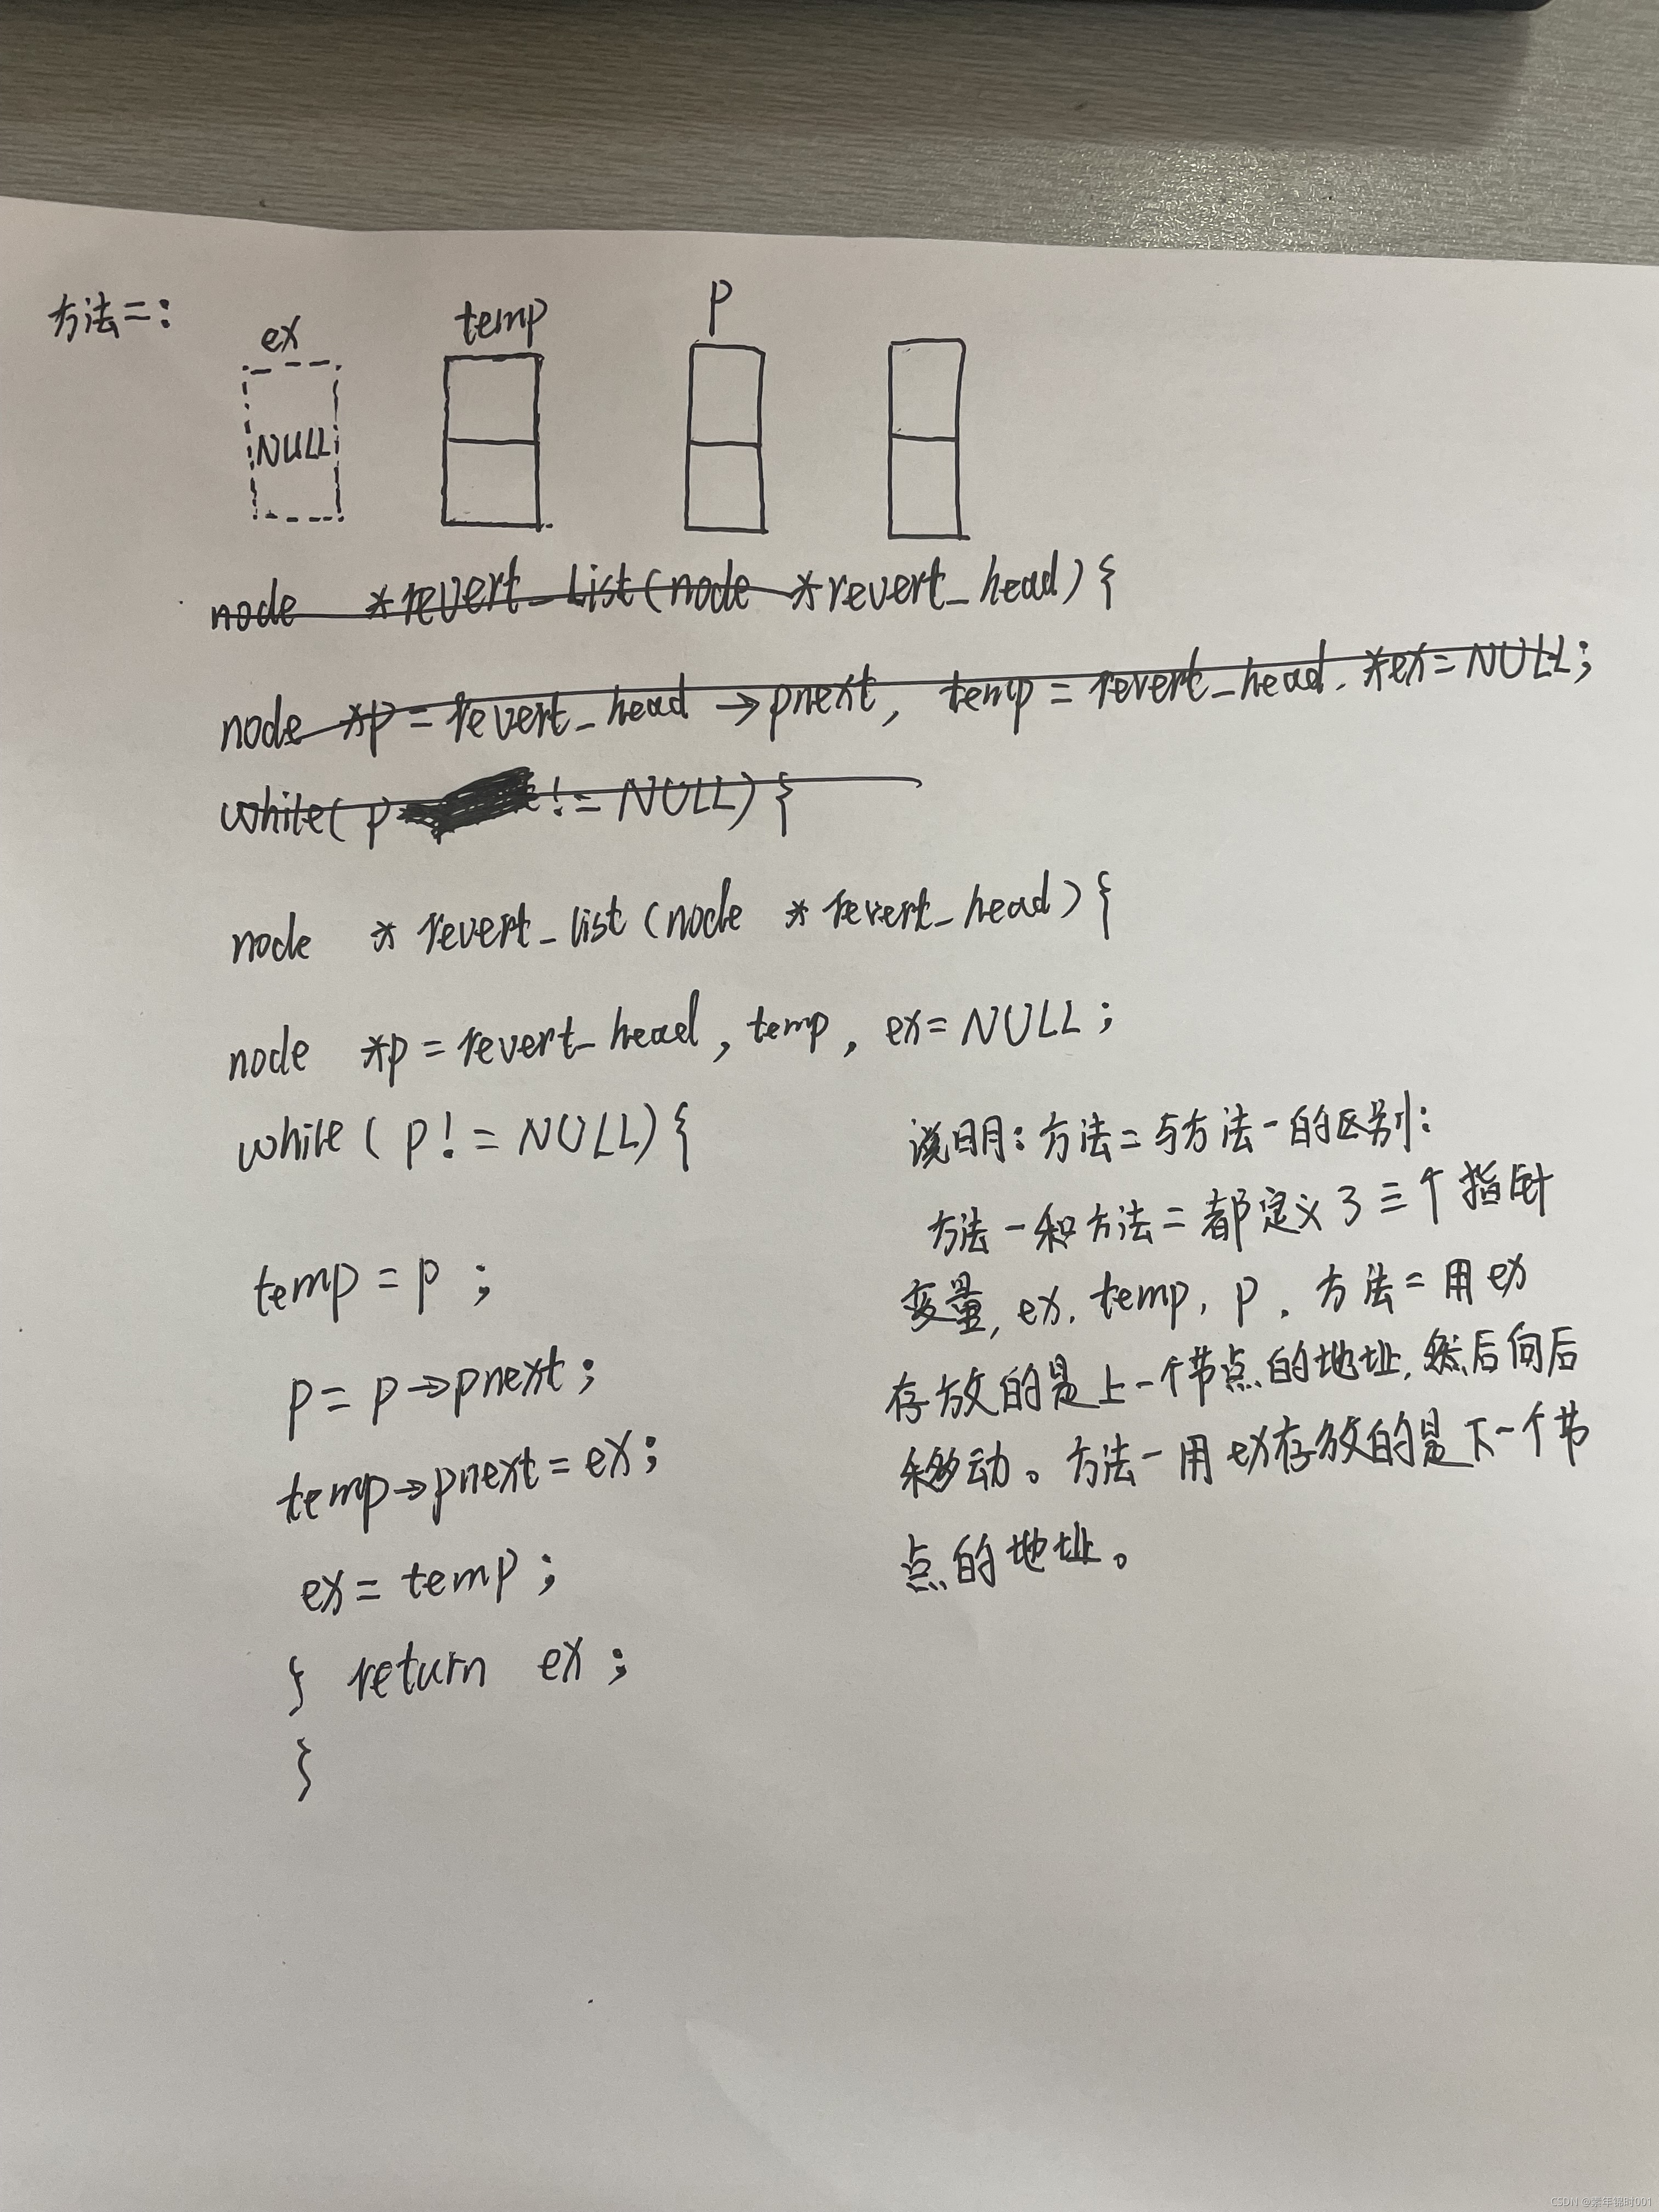 方法二:
ex
temp
p
NULL
node *revert_list(node *revert_head){
node *p = revert_head→pnext, temp = revert_head. *ex = NULL;
while( p != NULL) {
node * revert_list (node * revert_head) {
node *p = revert_head, temp, ex = NULL ;
while ( p != NULL) {
temp = p ;
p = p→pnext ;
temp→pnext = ex ;
ex = temp ;
} return ex ;
}
说明:方法二与方法一的区别:
方法一和方法二都定义了三个指针
变量, ex. temp, p. 方法二用ex
存放的是上一个节点的地址,然后向后
移动。方法一用ex存放的是下一个节
点的地址。
CSDN @素年锦时001